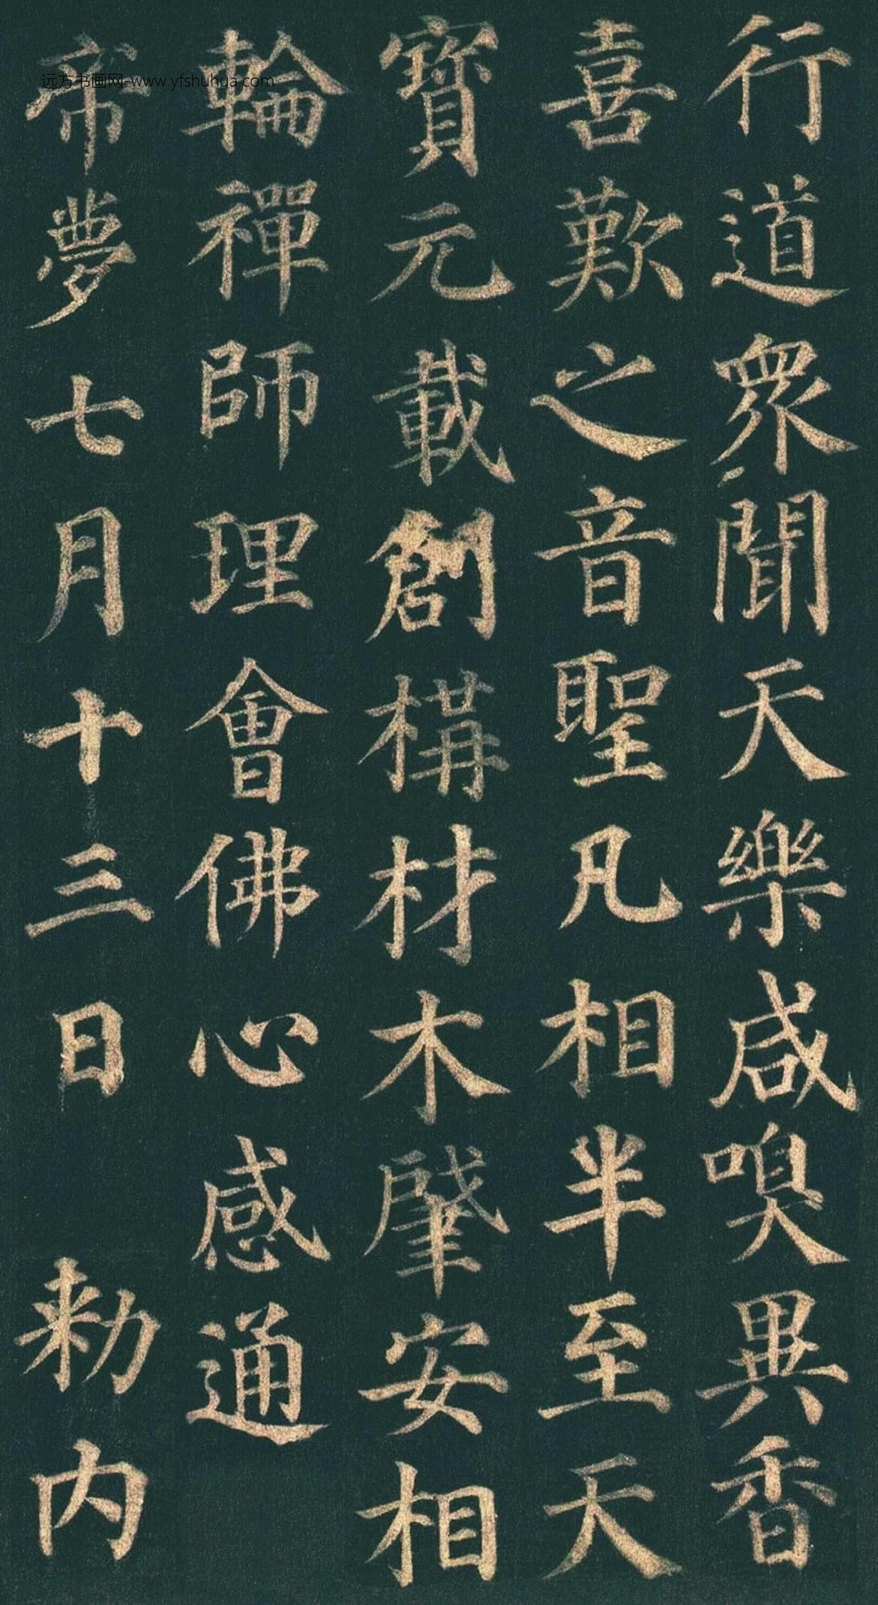 行道眾聞天樂咸嗅異香
喜歎之音聖凡相半至天
寶元載創構材木肇安相
輪禪師理會佛心感通
帝夢七月十三日 勑內
远方书画网-www.yfshuhua.com